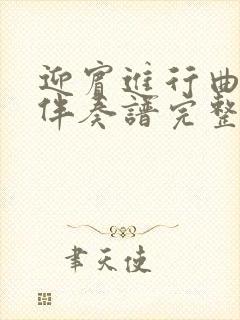 迎賓進行曲
伴奏譜完整
聿天使